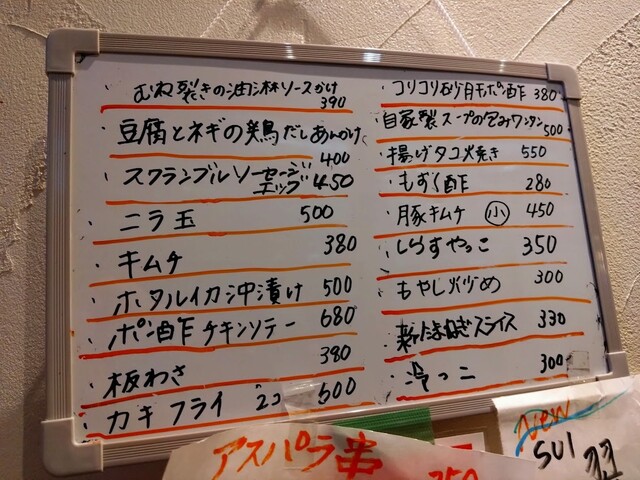 ・むね裂きの油淋ソースかけ
390
・豆腐とネギの鶏だしあんかけ
400
・スクランブルソーセージ
エッグ 450
・ニラ玉 500
・キムチ 380
・ホタルイカ沖漬け 500
・ポン酢チキンソテー 680
・板わさ 390
・カキフライ 2コ 500
・コリコリ砂肝ポン酢 380
自家製スープの包みワンタン
500
・揚げタコ焼き 550
・もずく酢 280
・豚キムチ 小 450
・しらすやっこ 350
・もやし炒め 300
・新たまねぎスライス 330
・冷やっこ 300
アスパラ串
350
New
SUI